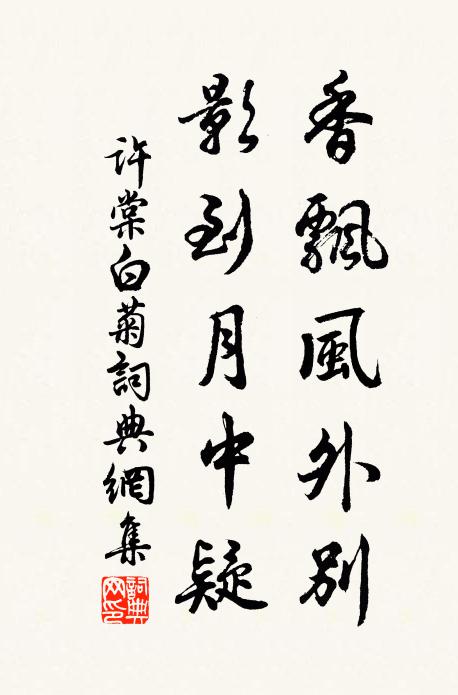 香飄風外別
影到月中疑
許棠白菊詞典網集
詞典網印